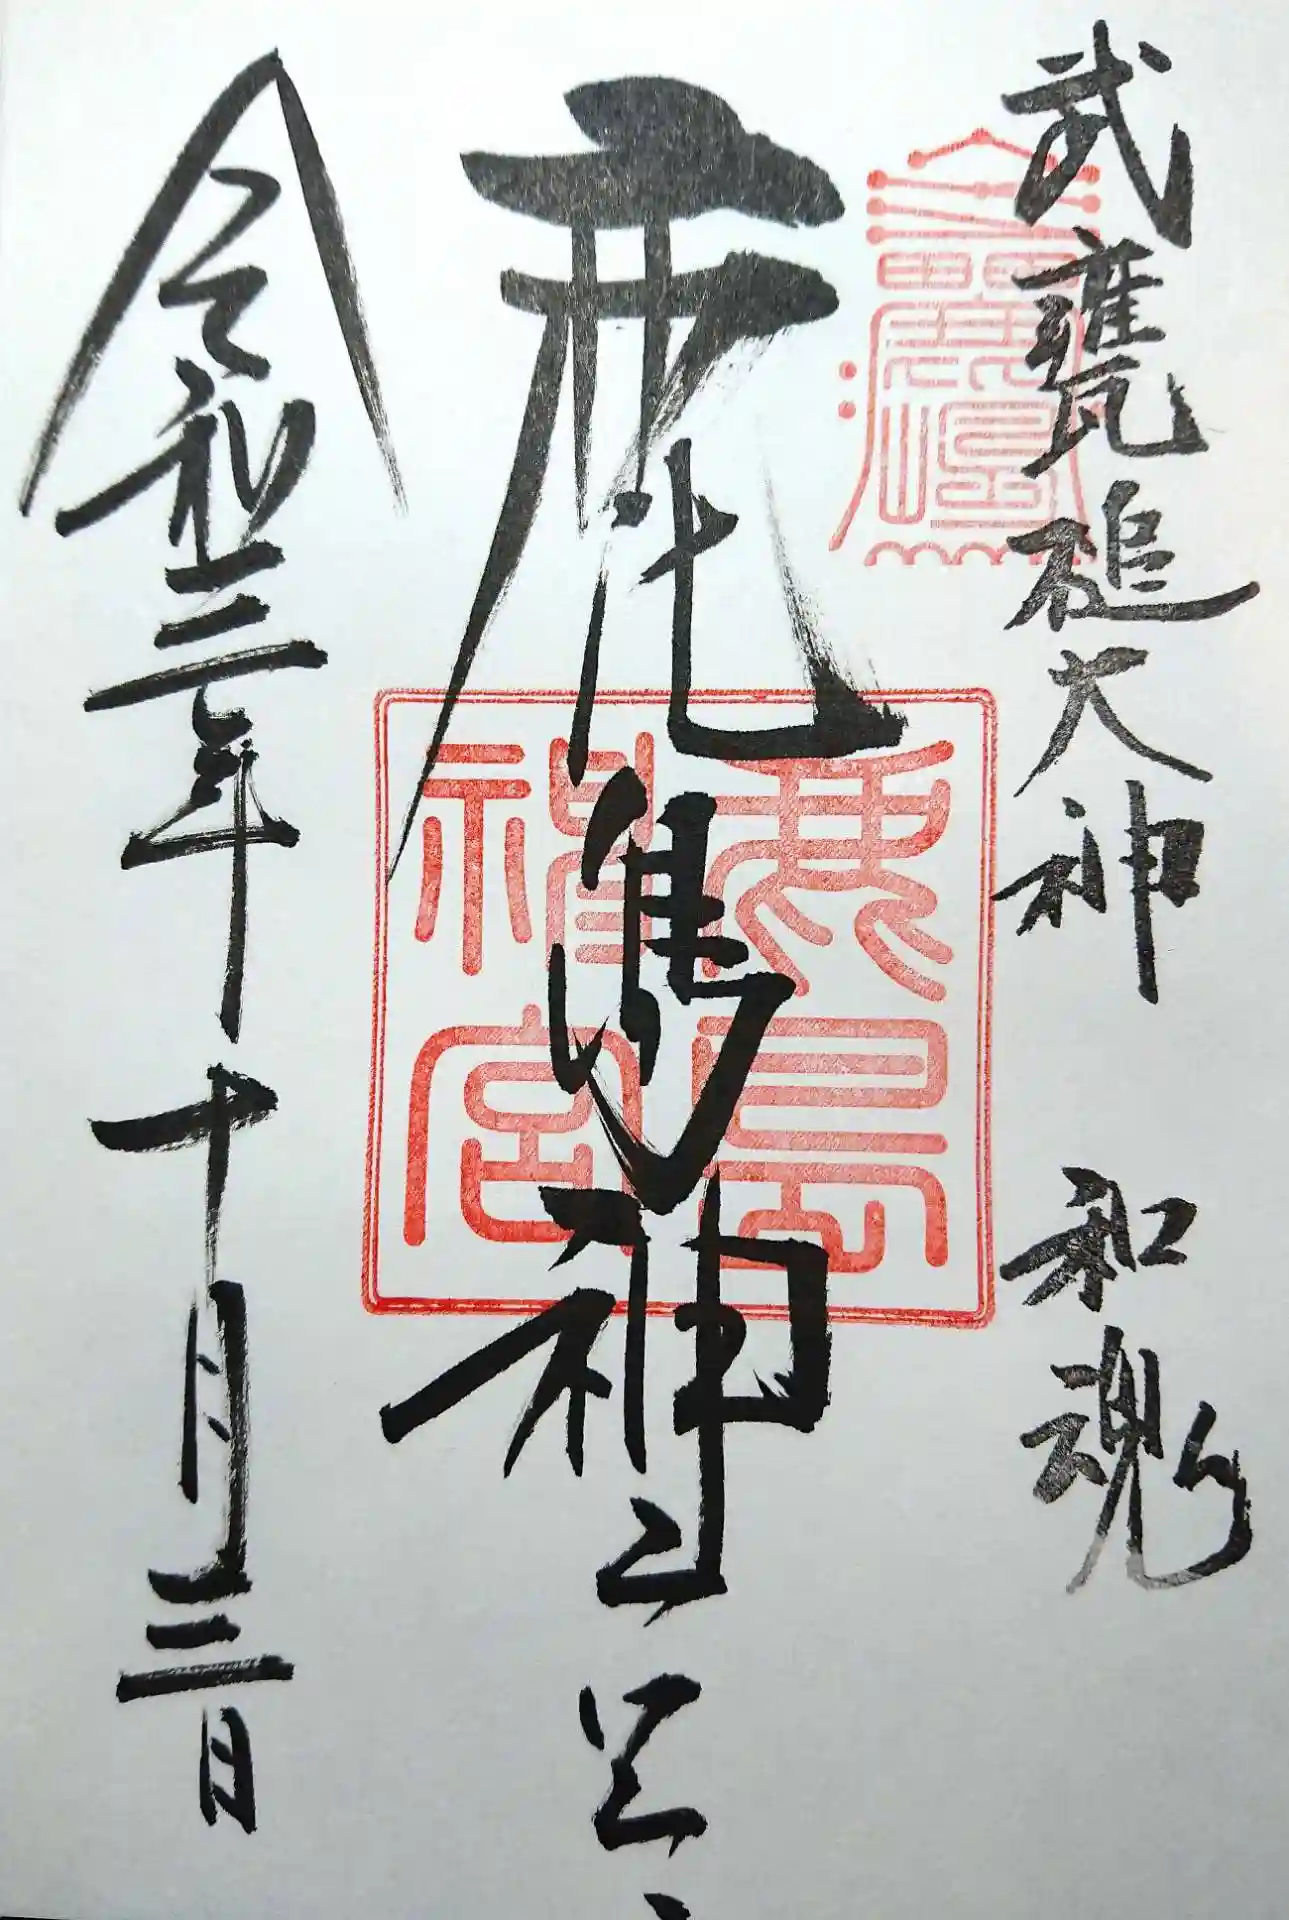 武甕槌大神 和魂
鹿島神宮
鹿島神宮
令和三年十月三日